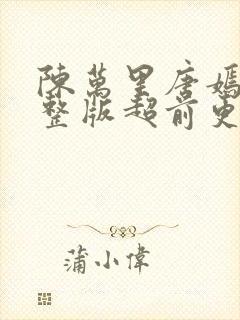 陳萬里唐嫣
整版超前更
蒲小偉